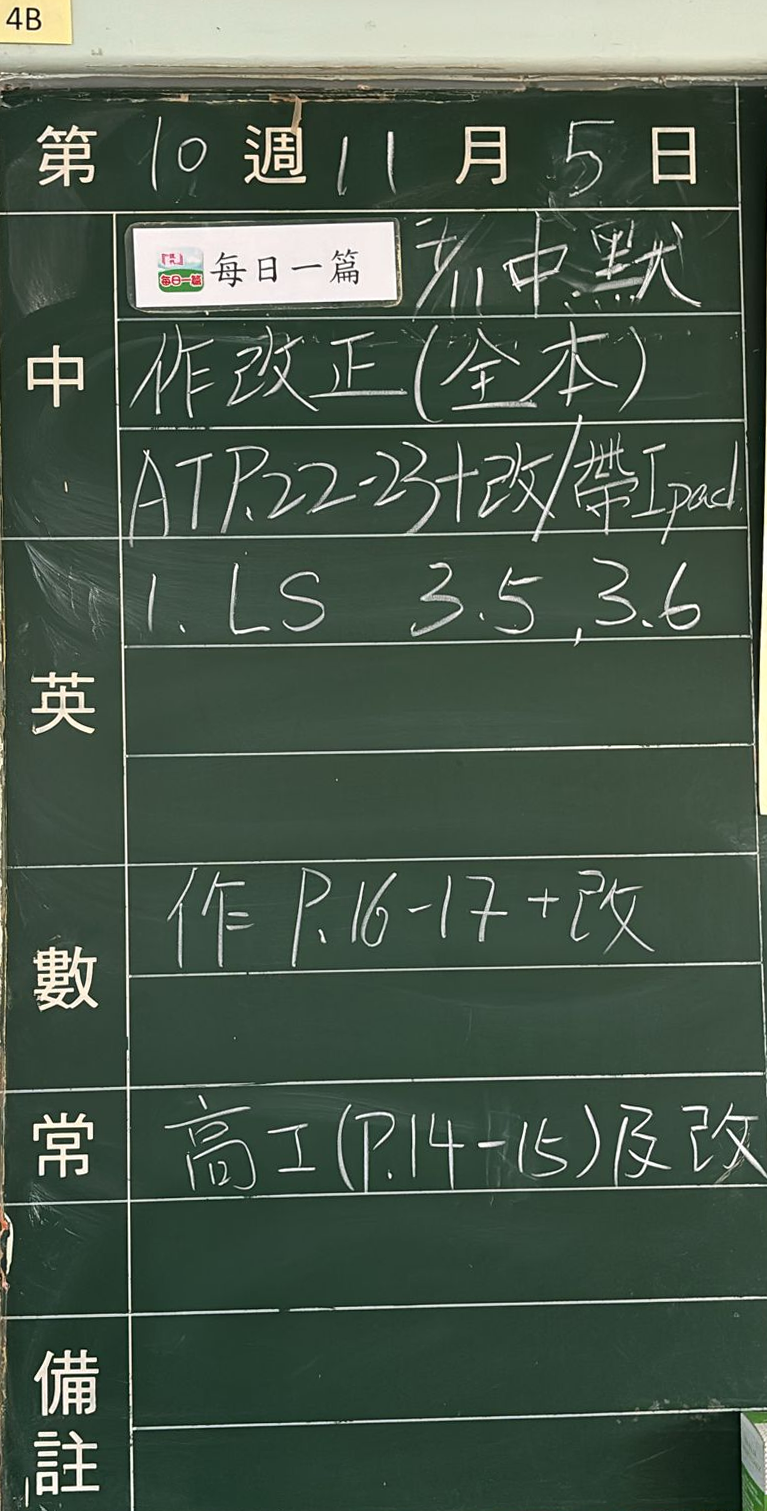 4B
第 10 週 11 月 5 日
中
每日一篇 每日一篇 7/11 中默
作改正(全本)
ATP.22-23+改/帶Ipad
英
1. LS 3.5,3.6
數
作 P.16-17+改
常
高工(P.14-15)及改
備註